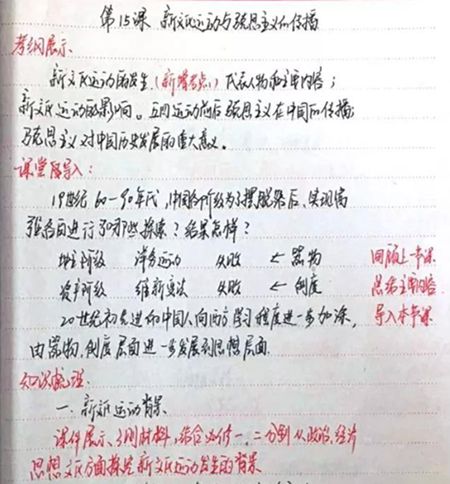 第15课 新文化运动与马克思主义的传播
考纲展示:
新文化运动的发生(新增考点)代表人物和主要内容;
新文化运动的影响。五四运动前后马克思主义在中国的传播;
马克思主义对中国历史发展的重大意义。
课堂导入:
19世纪60—90年代,中国各阶级为了摆脱落后、实现富
强各自进行了哪些探索?结果怎样?
地主阶级 洋务运动 失败 ← 器物 回顾上一课
资产阶级 维新变法 失败 ← 制度 思维主要内容
20世纪初先进的中国人向西方学习程度进一步加深, 导入本节课
由器物、制度层面进一步发展到思想层面.
知识梳理:
一. 新文化运动背景.
课件展示、引用材料,结合必修一、二分别从政治、经济
思想文化方面探究新文化运动发生的背景